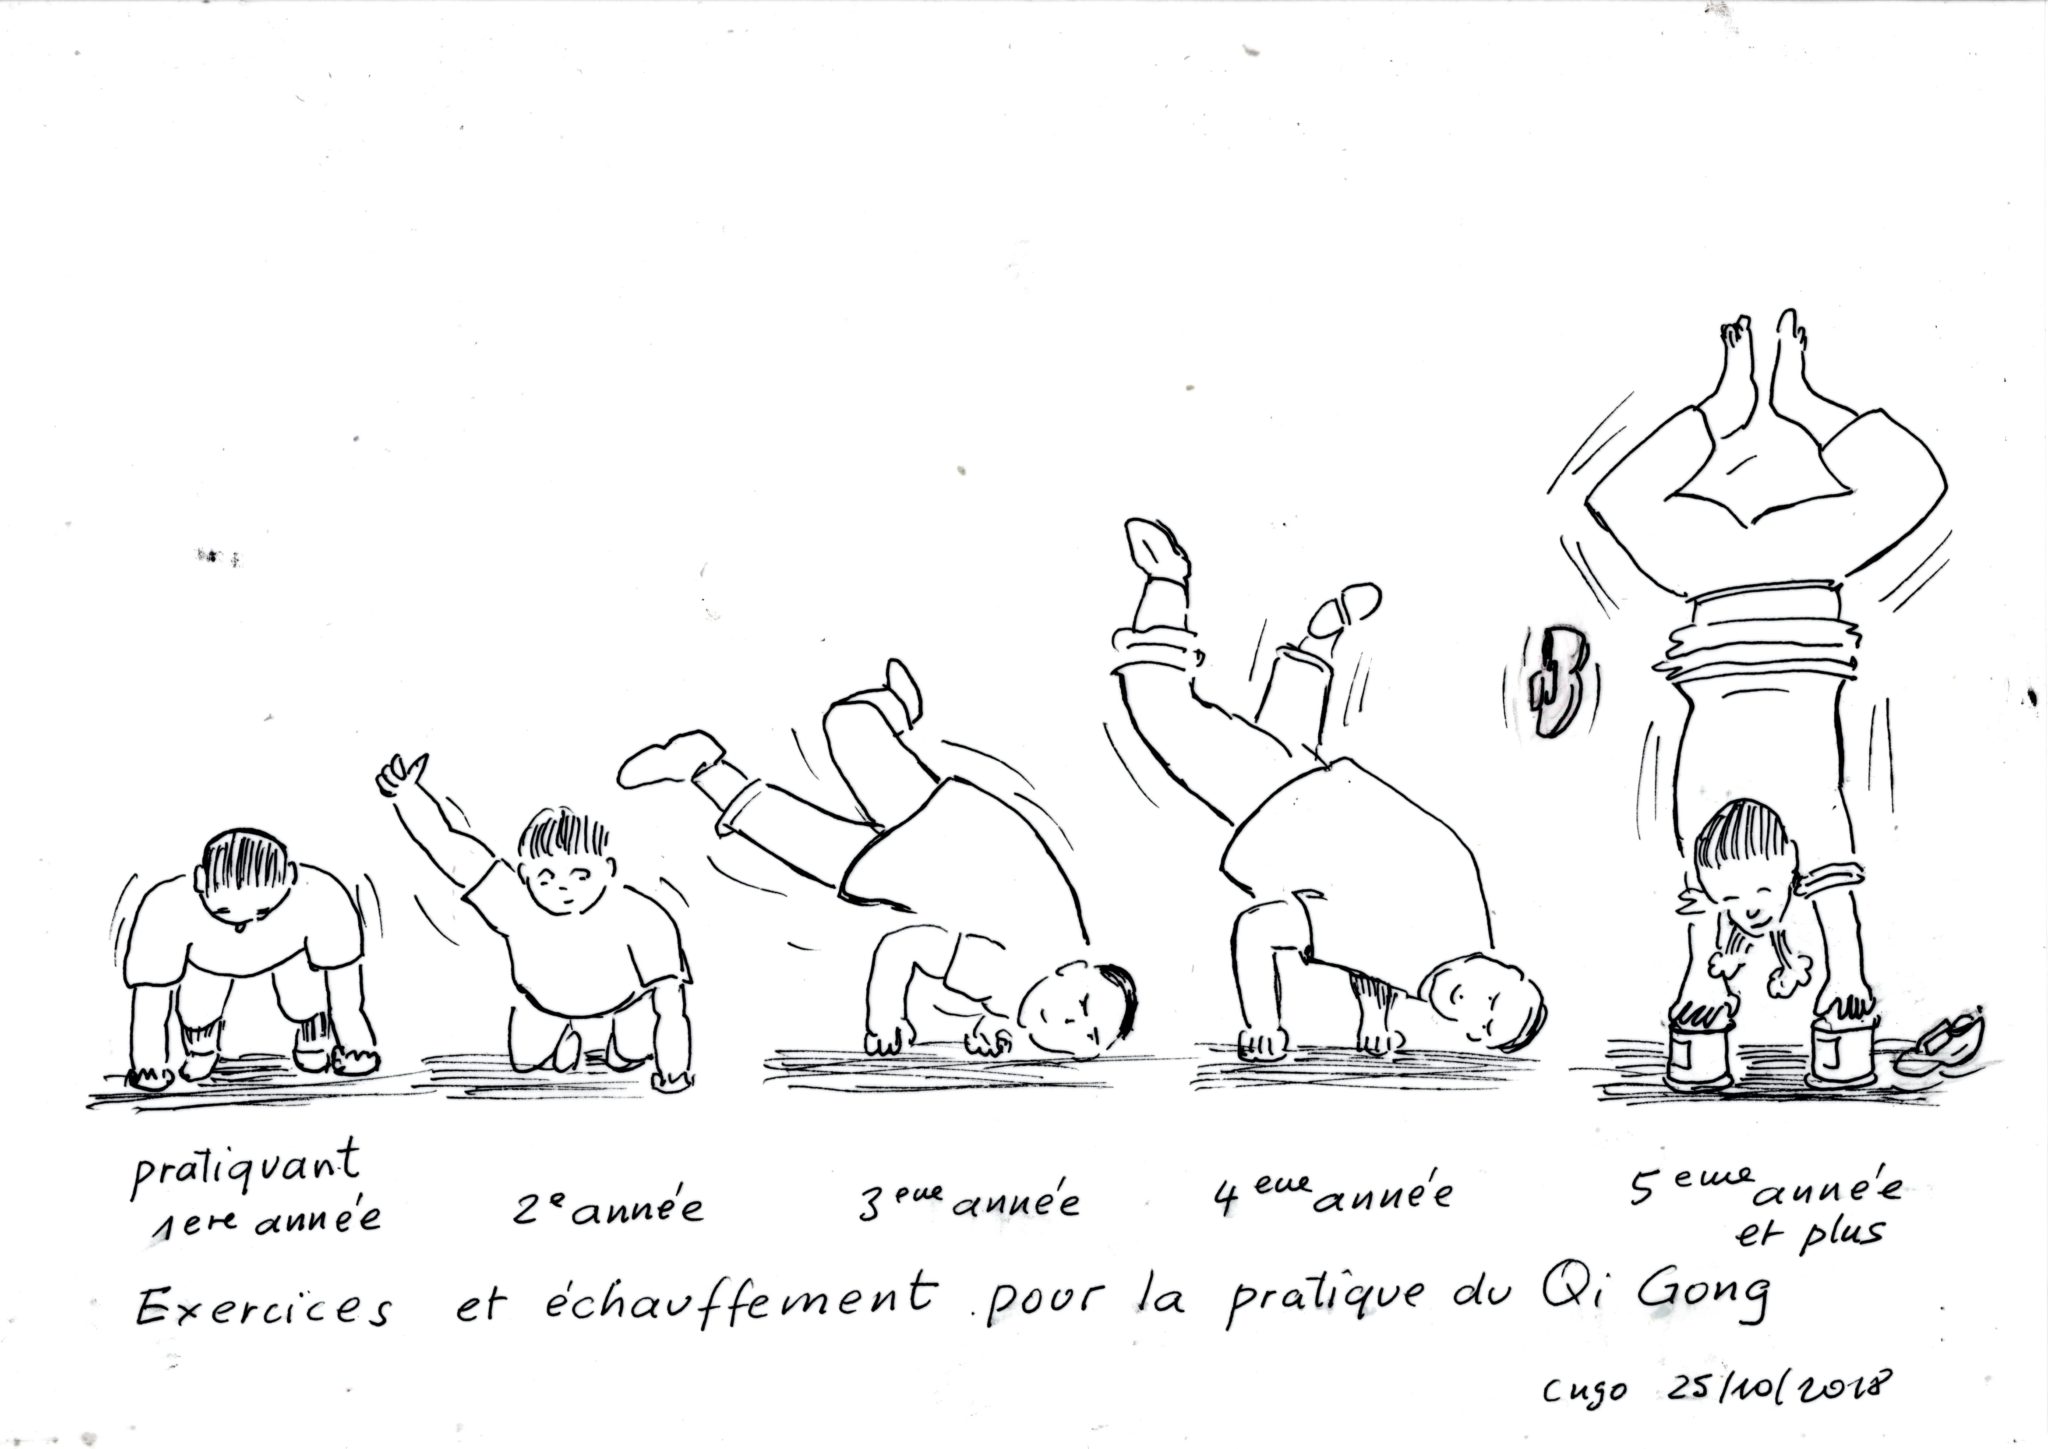 pratiquant
1ere année
2e année
3eme année
4eme année
5eme année
et plus
Exercices et échauffement pour la pratique du Qi Gong
cugo 25/10/2018